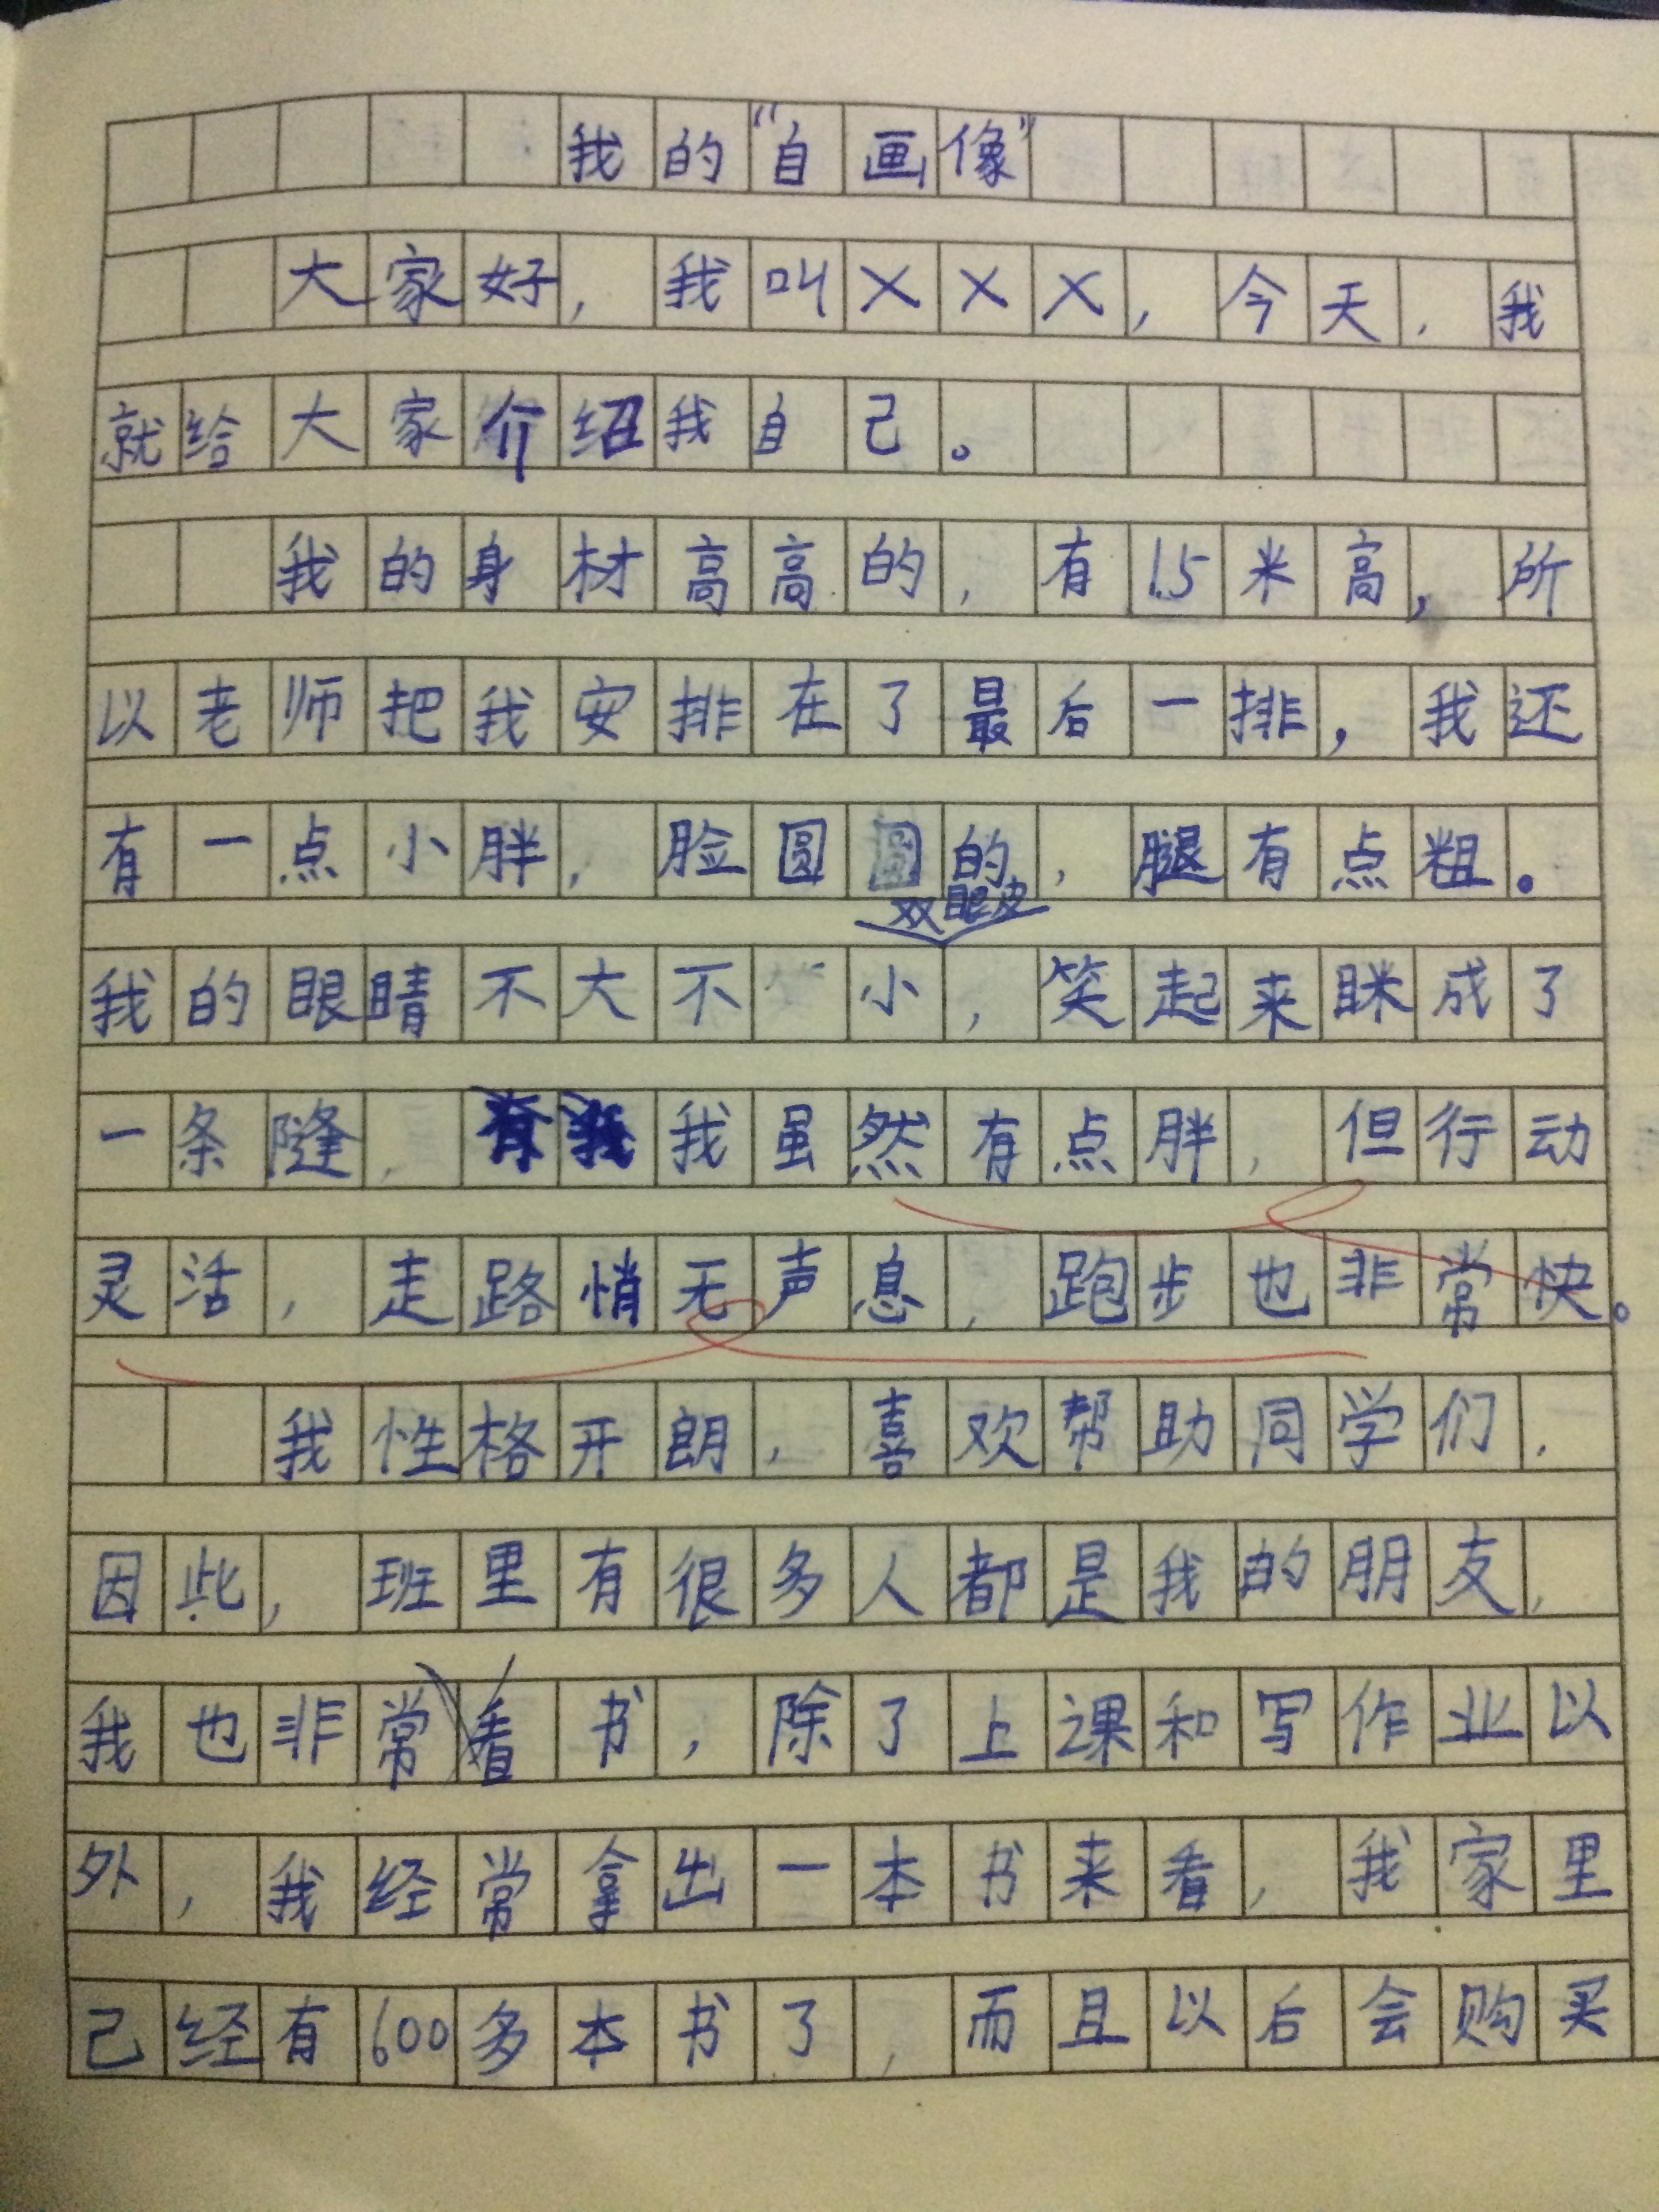 我的“自画像”
大家好，我叫×××，今天，我
就给大家介绍我自己。
我的身材高高的，有1.5米高，所
以老师把我安排在了最后一排，我还
有一点小胖，脸圆圆的，腿有点粗。
双眼皮
我的眼睛不大不小，笑起来眯成了
一条隧，我虽然有点胖，但行动
灵活，走路悄无声息，跑步也非常快。
我性格开朗，喜欢帮助同学们，
因此，班里有很多人都是我的朋友，
我也非常看书，除了上课和写作业以
外，我经常拿出一本书来看，我家里
己经有600多本书了，而且以后会购买